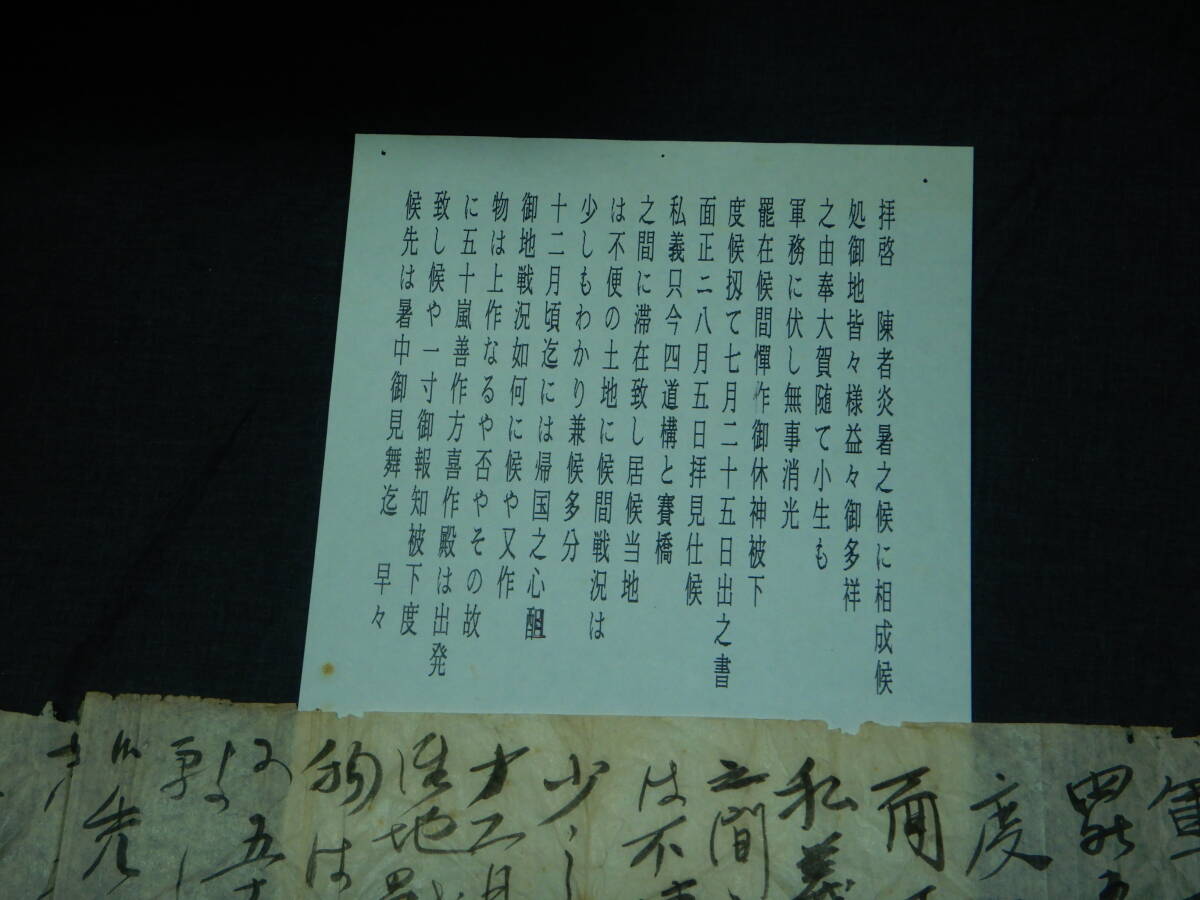 拝啓　陳者炎暑之候に相成候
処御地皆々様益々御多祥
之由奉大賀随て小生も
軍務に伏し無事消光
罷在候間憚作御休神被下
度候扨て七月二十五日出之書
面正ニ八月五日拝見仕候
私義只今四道構と賽橋
之間に滞在致し居候当地
は不便の土地に候間戦況は
少しもわかり兼候多分
十二月頃迄には帰国之心
御地戦況如何に候や又作
物は上作なるや否やその故
に五十嵐善作方喜作殿は出発
致し候や一寸御報知被下度
候先は暑中御見舞迄　早々
軍
罷
度
面
私義
之間
は不
少し
十二月
御地戦
物は
に五十
致し
候先